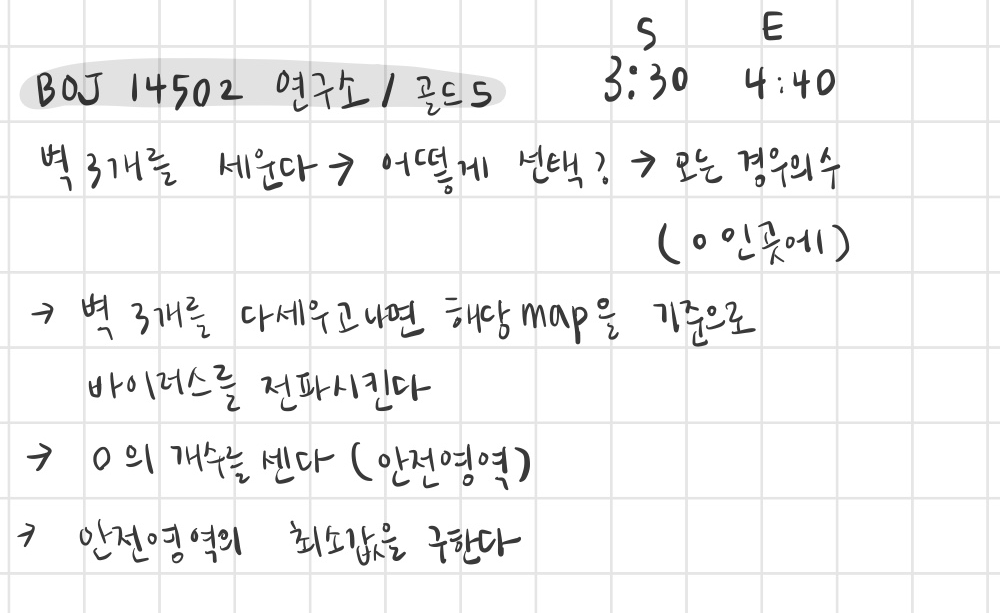 S E
BOJ 14502 연구소 / 골드5 3:30 4:40
벽 3개를 세운다 → 어떻게 선택? → 모든 경우의수
(0 인곳에)
→ 벽 3개를 다세우고나면 해당map을 기준으로
바이러스를 전파시킨다
→ 0의 개수를 센다 (안전영역)
→ 안전영역의 최소값을 구한다